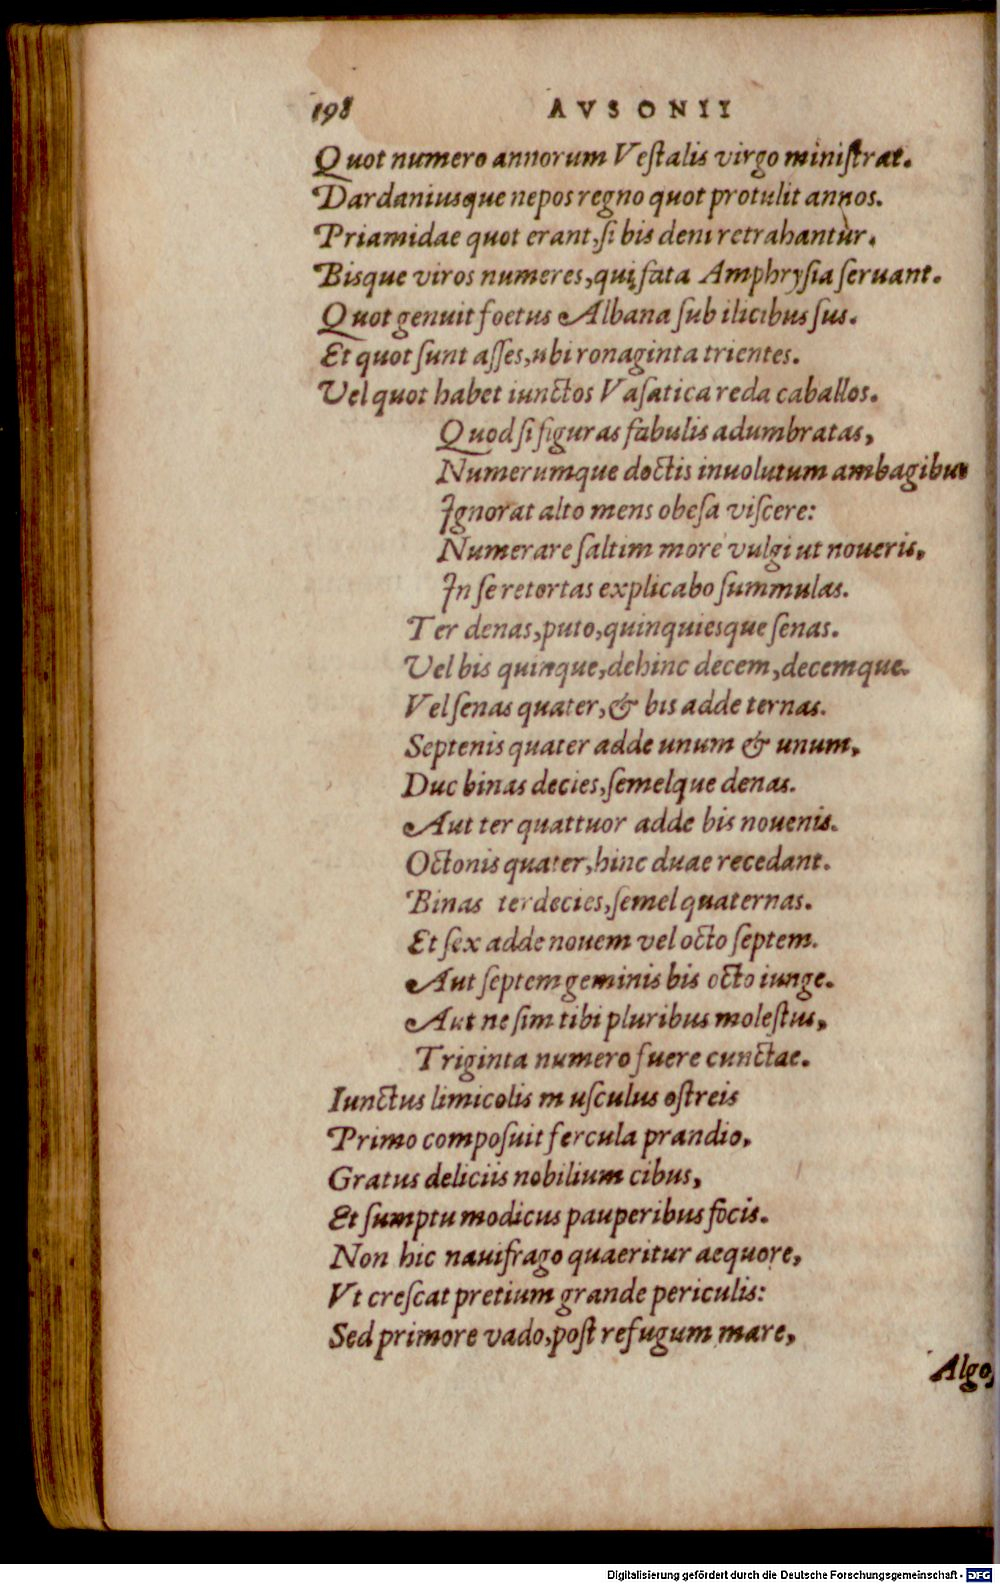 198 AVSONII
Quot numero annorum Veſtalis virgo miniſtrat.
Dardaniusque nepos regno quot protulit annos.
Priamidae quot erant, ſi bis deni retrahantur.
Bisque viros numeres, qui fata Amphryſia ſeruant.
Quot genuit foetus Albana ſub ilicibus ſus.
Et quot ſunt aſſes, ubi ronaginta trientes.
Vel quot habet iunctos Vaſatica reda caballos.
Quod ſi figuras fabulis adumbratas,
Numerumque doctis inuolutum ambagibus
Ignorat alto mens obeſa viſcere:
Numerare ſaltim more vulgi ut noueris,
In ſe retortas explicabo ſummulas.
Ter denas, puto, quinquiesque ſenas.
Vel bis quinque, dehinc decem, decemque.
Vel ſenas quater, & bis adde ternas.
Septenis quater adde unum & unum,
Duc binas decies, ſemelque denas.
Aut ter quattuor adde bis nouenis.
Octonis quater, hinc duae recedant.
Binas terdecies, ſemel quaternas.
Et ſex adde nouem vel octo ſeptem.
Aut ſeptem geminis bis octo iunge.
Aut ne ſim tibi pluribus moleſtus,
Triginta numero fuere cunctae.
Iunctus limicolis m uſculus oſtreis
Primo compoſuit fercula prandio,
Gratus deliciis nobilium cibus,
Et ſumptu modicus pauperibus focis.
Non hic nauifrago quaeritur aequore,
Vt creſcat pretium grande periculis:
Sed primore vado, poſt refugum mare,
Algoſ
Digitalisierung gefördert durch die Deutsche Forschungsgemeinschaft - DFG